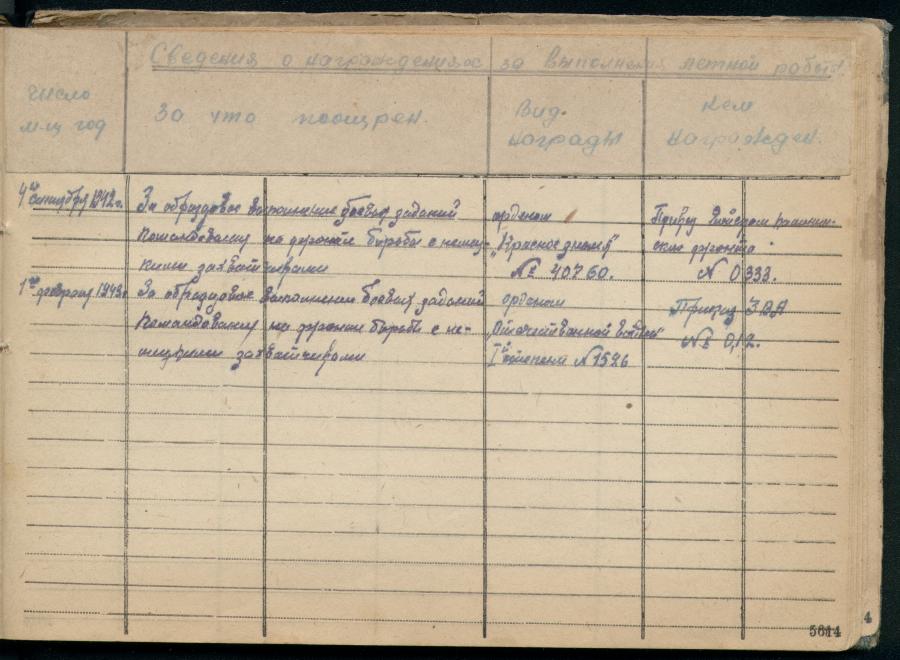 Сведения о награждениях за выполнения летной работы
число м-ц год
За что поощрен.
Вид. награды
Кем награжден.
4го сентября 1942 г.
За образцовое выполнение боевых заданий
командованию на фронте борьбы с немец-
кими захватчиками
орденом
„Красное знамя"
№ 40760.
Приказ войскам калинин-
ского фронта
N 0333.
1го февраля 1943 г.
За образцовое выполнении боевых заданий
Командованию на фронте борьбы с не-
мецкими захватчиками
орденом
„Отечественной войны"
I й степени N 1526
Приказ 3ВА
№ 012.
5614
4